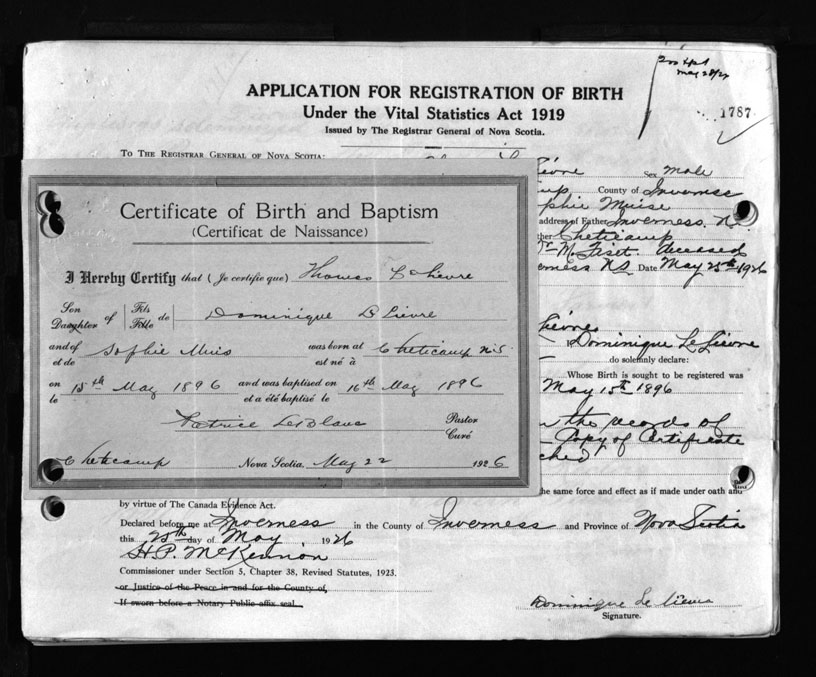 May 28/26
APPLICATION FOR REGISTRATION OF BIRTH
Under the Vital Statistics Act 1919
Issued by The Registrar General of Nova Scotia.
1787
To The Registrar General of Nova Scotia:
Sex male
County of Inverness
phie Muise
address of Father Inverness, N.
ther Cheticamp
M. Fiset. deceased
erness N.S. Date May 25th 1926
Certificate of Birth and Baptism
(Certificat de Naissance)
I Hereby Certify that (Je certifie que) Thomas LeLievre
Son Daughter of Fils Fille de Dominique LeLievre
and of et de Sophie Muis was born at est né à Cheticamp N.S.
on le 15th May 1896 and was baptised on et a été baptisé le 16th May 1896
Patrice LeBlanc Pastor Curé
Cheticamp Nova Scotia, May 22 1926
Lièvre
I Dominique LeLièvre
do solemnly declare:
Whose Birth is sought to be registered was
May 15th 1896
the records of
Copy of Certificate
ched
the same force and effect as if made under oath and
by virtue of The Canada Evidence Act.
Declared before me at Inverness in the County of Inverness and Province of Nova Scotia
this 25th day of May 1926
Commissioner under Section 5, Chapter 38, Revised Statutes, 1923.
or Justice of the Peace in and for the County of,
If sworn before a Notary Public affix seal.
Dominique Le lievre
Signature.